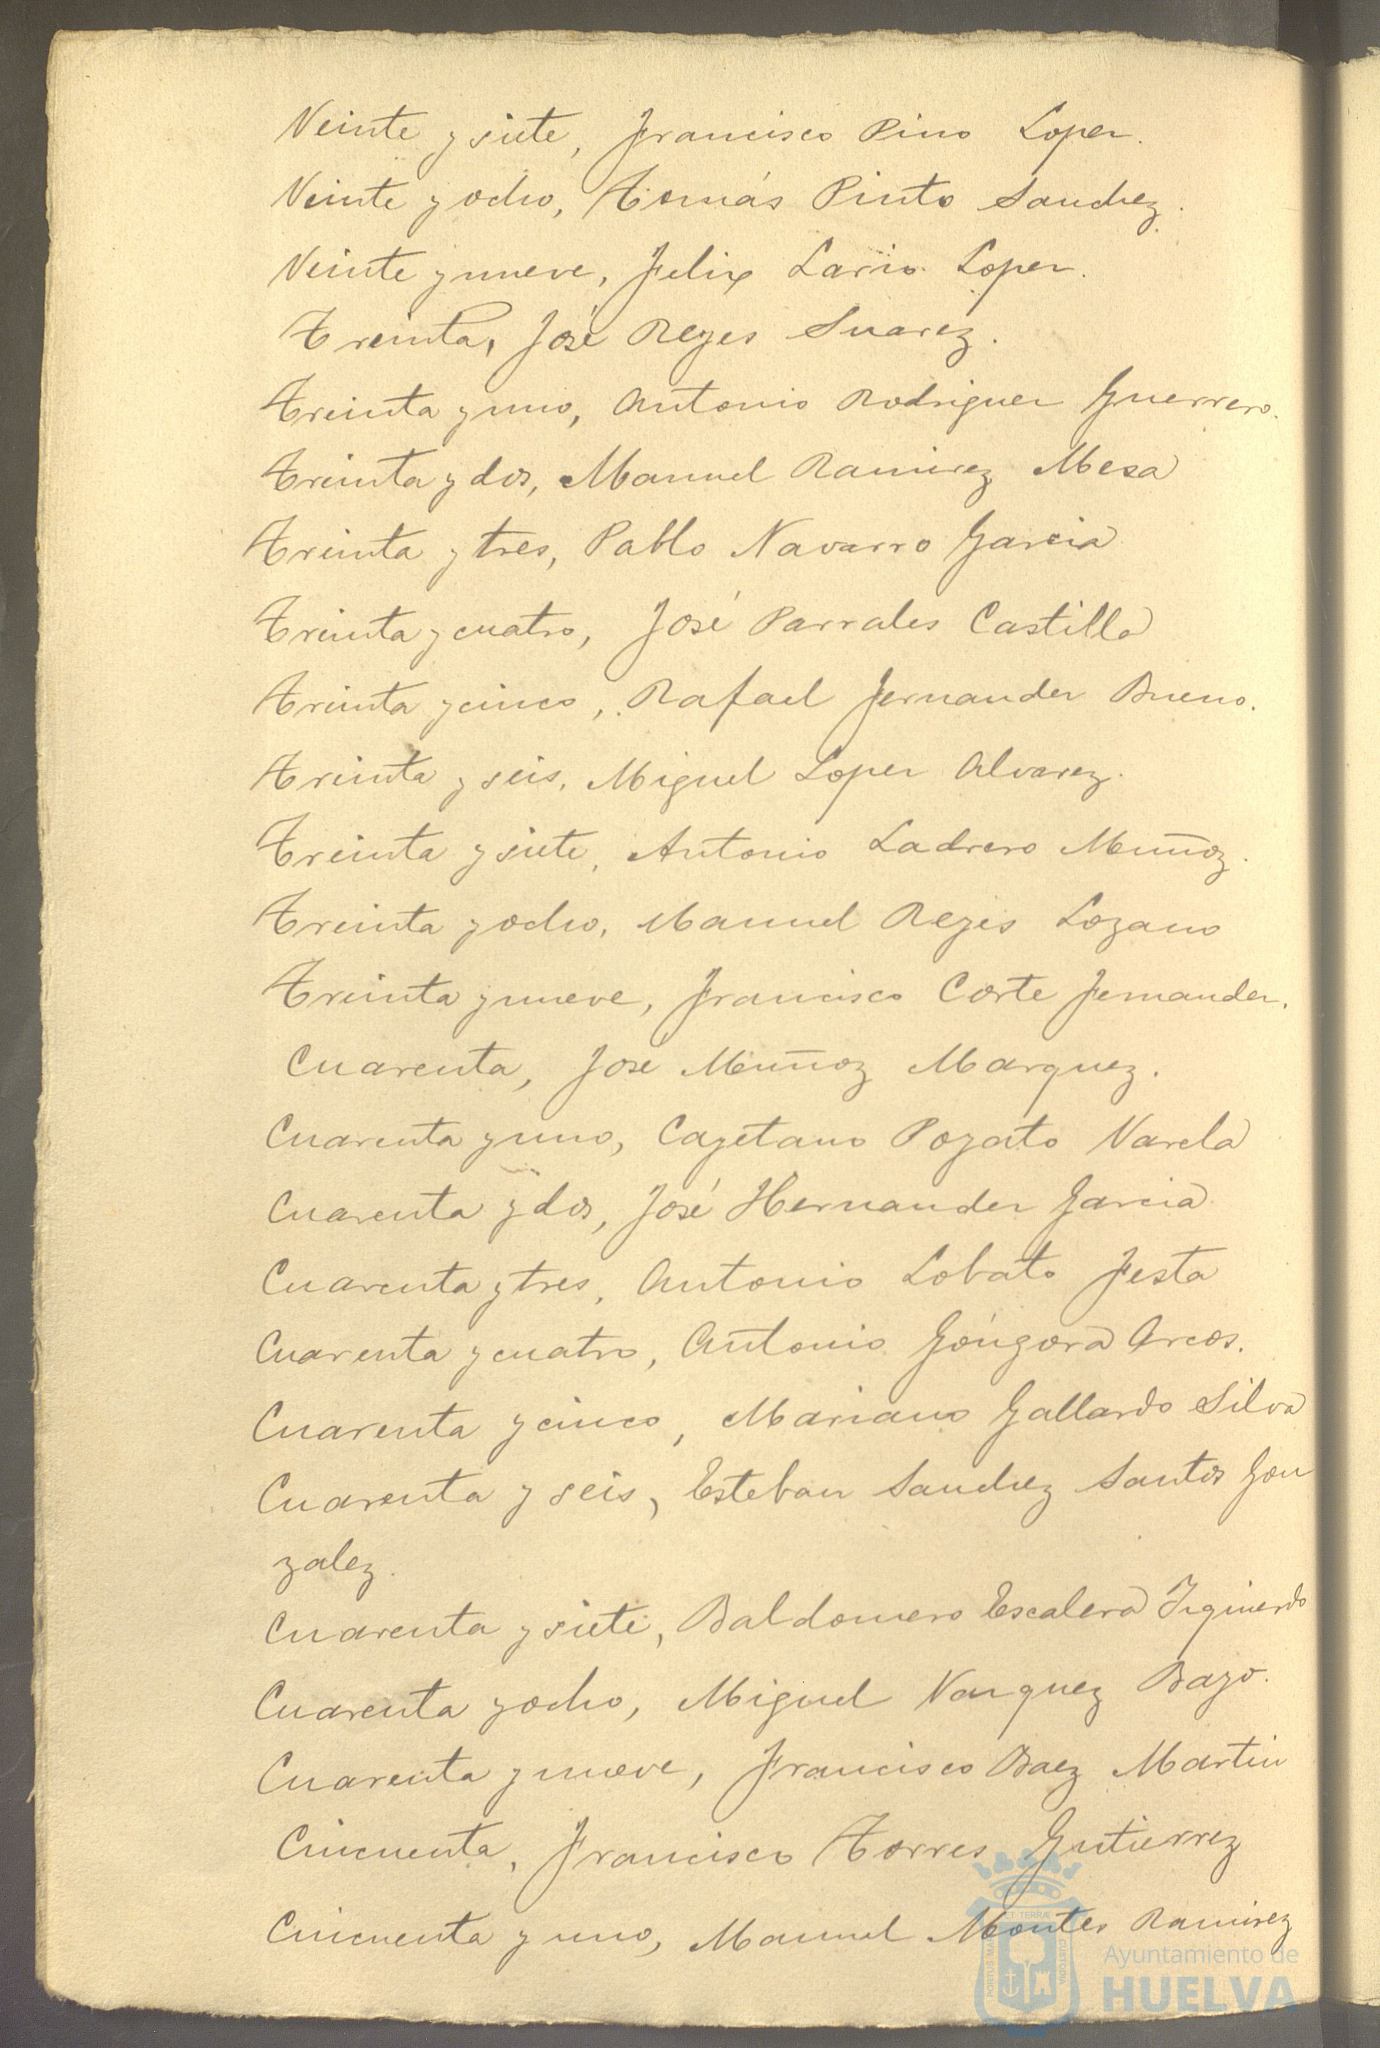 Veinte y siete, Francisco Pino Lopez.
Veinte y ocho, Tomás Pinto Sanchez.
Veinte y nueve, Felix Lario Lopez.
Treinta, José Reyes Suarez.
Treinta y uno, Antonio Rodriguez Guerrero.
Treinta y dos, Manuel Ramirez Mesa
Treinta y tres, Pablo Navarro Garcia
Treinta y cuatro, José Parrales Castilla
Treinta y cinco, Rafael Fernandez Bueno.
Treinta y seis, Miguel Lopez Alvarez.
Treinta y siete, Antonio Ladrero Muñoz.
Treinta y ocho, Manuel Reyes Lozano
Treinta y nueve, Francisco Corte Fernandez.
Cuarenta, José Muñoz Marquez.
Cuarenta y uno, Cayetano Poyato Varela
Cuarenta y dos, José Hernandez Garcia
Cuarenta y tres, Antonio Lobato Festa
Cuarenta y cuatro, Antonio Góngora Arcos.
Cuarenta y cinco, Mariano Gallardo Silva
Cuarenta y seis, Esteban Sanchez Santos Gon
zalez.
Cuarenta y siete, Baldomero Escalera Izquierdo
Cuarenta y ocho, Miguel Vazquez Bayo.
Cuarenta y nueve, Francisco Baez Martin
Cincuenta, Francisco Torres Gutierrez
Cincuenta y uno, Manuel Montes Ramirez
Ayuntamiento de
HUELVA